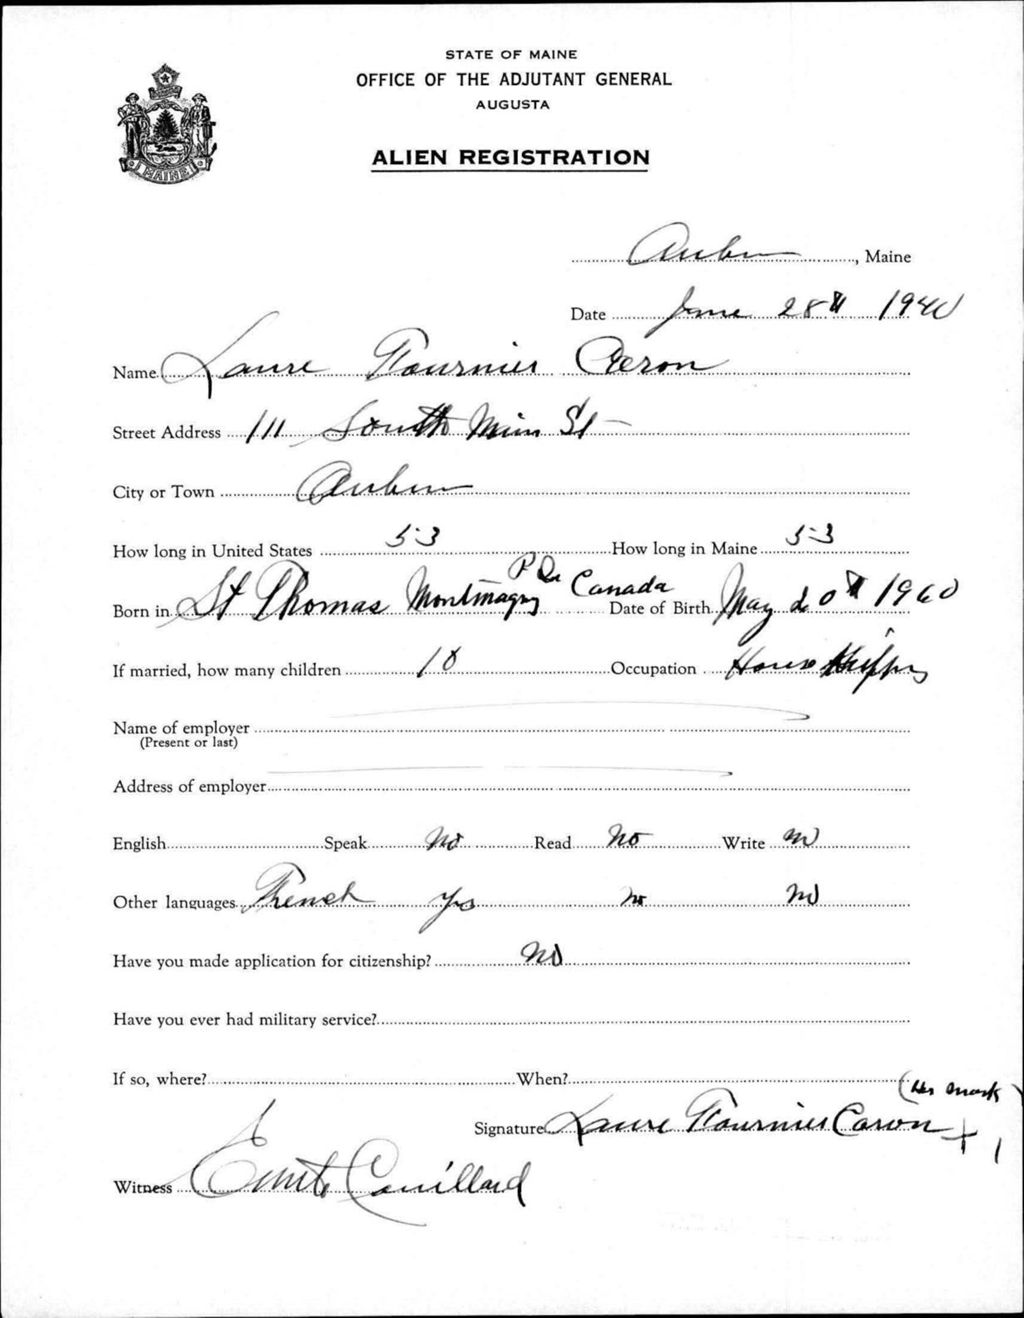 STATE OF MAINE
OFFICE OF THE ADJUTANT GENERAL
AUGUSTA
ALIEN REGISTRATION
MAINE
Auburn, Maine
Date June 28th 1940
Name Laure Fournier Caron
Street Address 111 South Main St
City or Town Auburn
How long in United States 53 How long in Maine 53
Born in St Thomas Montmagny P Qu Canada Date of Birth May 20th 1960
If married, how many children 10 Occupation House
Name of employer
(Present or last)
Address of employer
English Speak No Read No Write No
Other languages French Yes No No
Have you made application for citizenship? No
Have you ever had military service?
If so, where? When?
(her mark)
Signature Laure Fournier Caron X
Witness Couillard